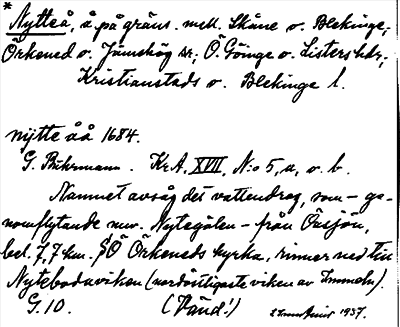 * Nytteå, å på gräns. mell. Skåne o. Blekinge,
Örkened o. Jämshög sr, Ö. Göinge o. Listers hdr,
Kristianstads o. Blekinge l.
nÿtte åå 1684.
G. Buhrmann. Kr.A. XVII, N:o 5, a, o. b.
Namnet avsåg det vattendrag, som – ge-
nomflytande nuv. Nytegölen – från Örsjön,
bel. 7,7 km. SÖ Örkeneds kyrka, rinner ned till
Nytebodaviken (nordöstligaste viken av Immeln).
G. 10. (Vänd!) 1937.